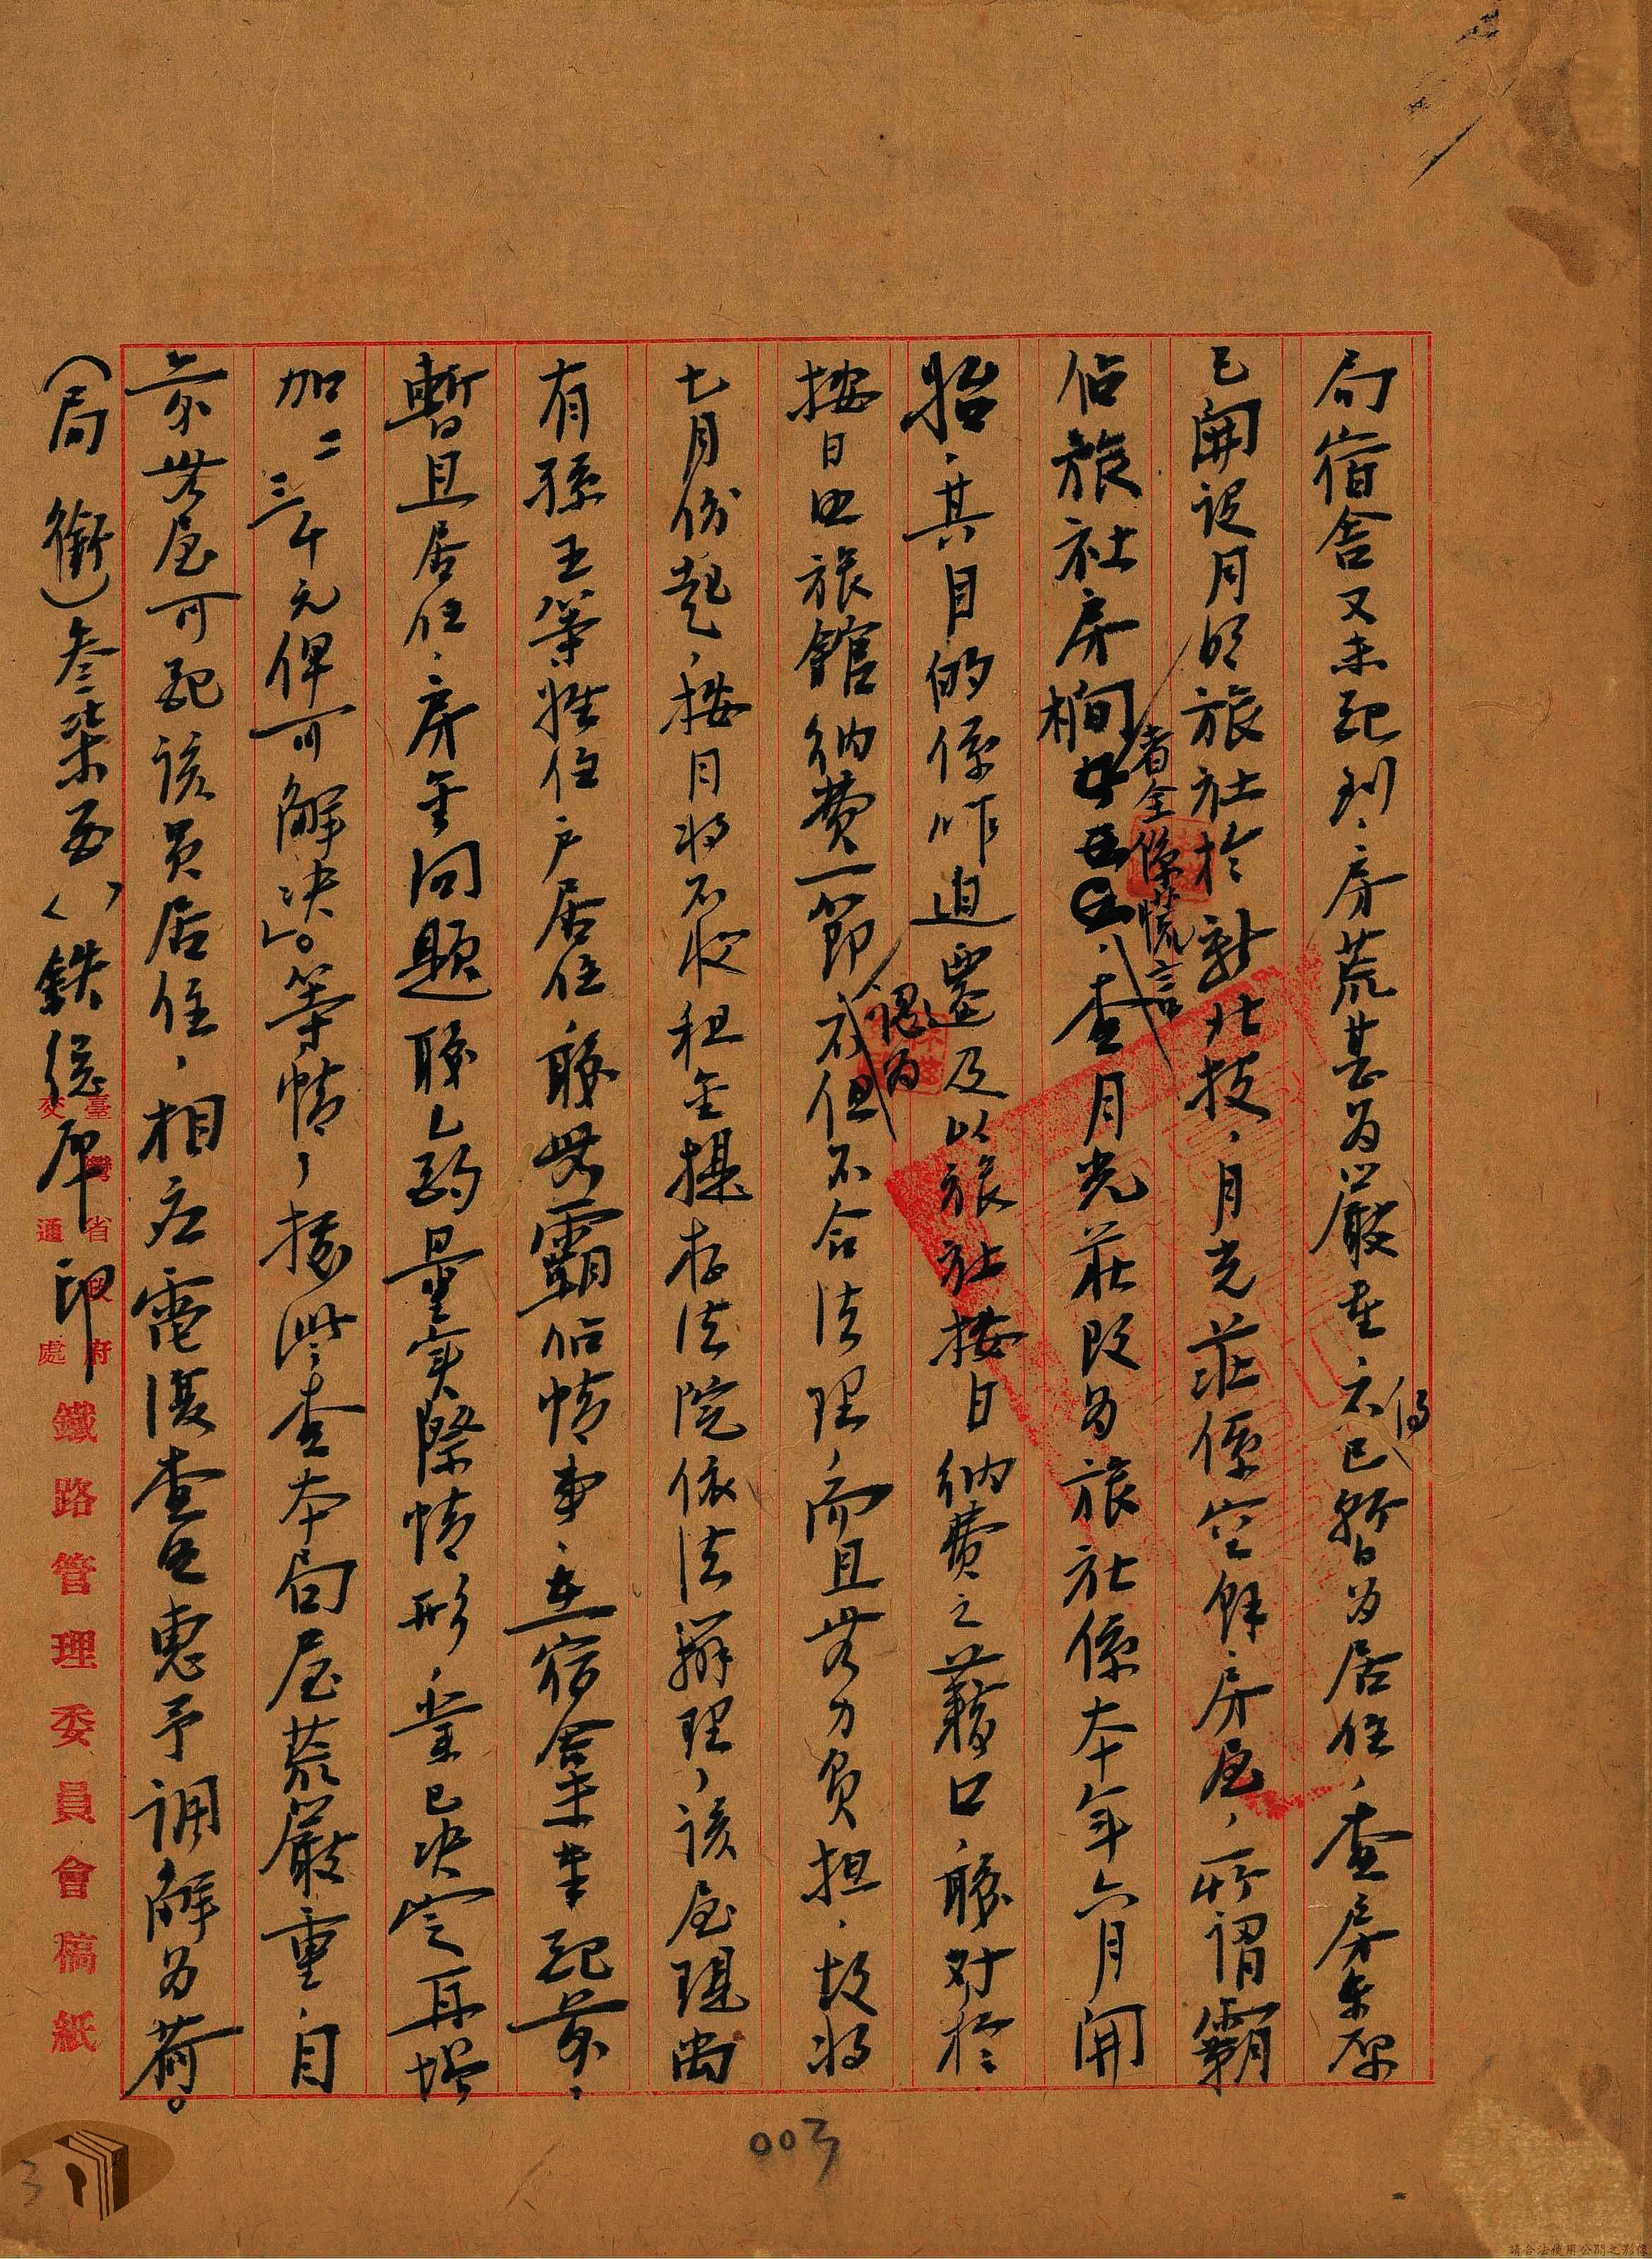 局宿舍又未配到、房荒甚為嚴重、不得已暫為居住，查房東原
已開設月明旅社於新北投，月光莊係空餘房屋，所謂霸
佔旅社房間者全係謊言、查月光莊改為旅社係本年六月開
始、其目的係咋迫遷及以旅社按日納費之藉口、職對於
按日照旅館納費一節認為不但不合法理，而且無力負担，故將
七月份起，按月將不收租金提存法院依法辦理，該屋現尚
有孫王等姓住戶居住職無霸佔情事，在宿舍未配前，
暫且居住，房金問題職已酌量實際情形，業已決定再增
加二三千元俾可解決」。等情，據此查本局屋荒嚴重，目
前無屋可配該員居住，相應電復查照惠予調解為荷。
（局銜）叁柒酉（）鉄總印
臺灣省政府
交通處
鐵路管理委員會稿紙
003
3
請合法使用公開之影像